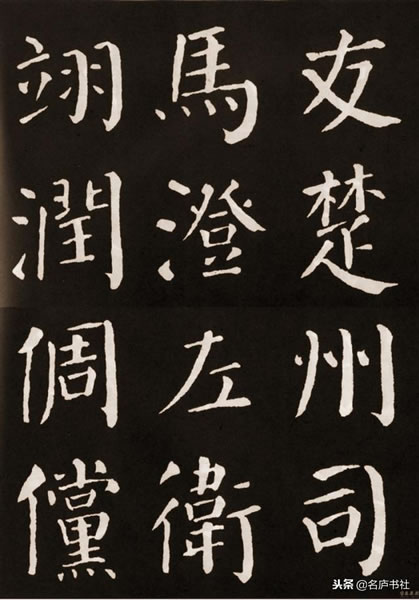 友楚州司
馬澄左衛
翊潤倜儻
头条 @名庐书社